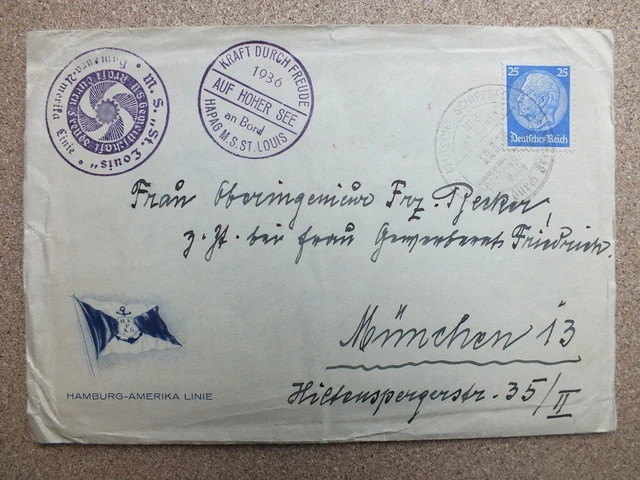 M.S. "St. Louis"
Hamburg-Amerika Linie
N.S. Gemeinschaft Kraft durch Freude
KRAFT DURCH FREUDE
1936
AUF HOHER SEE
an Bord
HAPAG M.S. ST. LOUIS
25 25
Deutsches Reich
Frau Oberingenieur Frz. Becker,
z. Zt. bei Frau Gewerberat Friedrich.
München 13
Hiltenspergerstr. 35/II
HAPAG
HAMBURG-AMERIKA LINIE